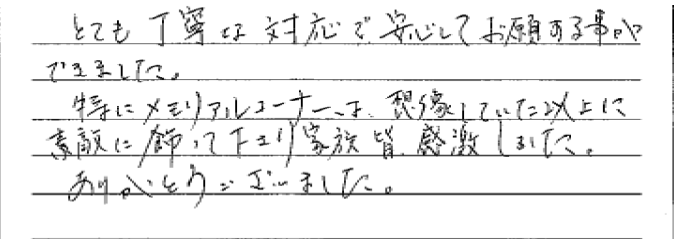 とても丁寧な対応で安心してお願いする事が
できました。
特にメモリアルコーナーは、想像していた以上に
素敵に飾って下さり家族皆感激しました。
ありがとうございました。